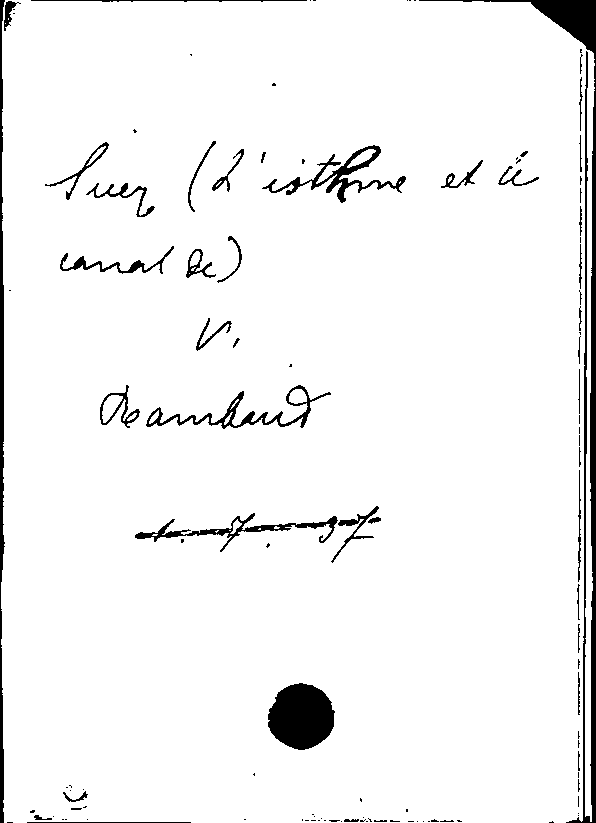 Suez (L'isthme et le
canal de)
V.
Rambaud
1. 7. 37